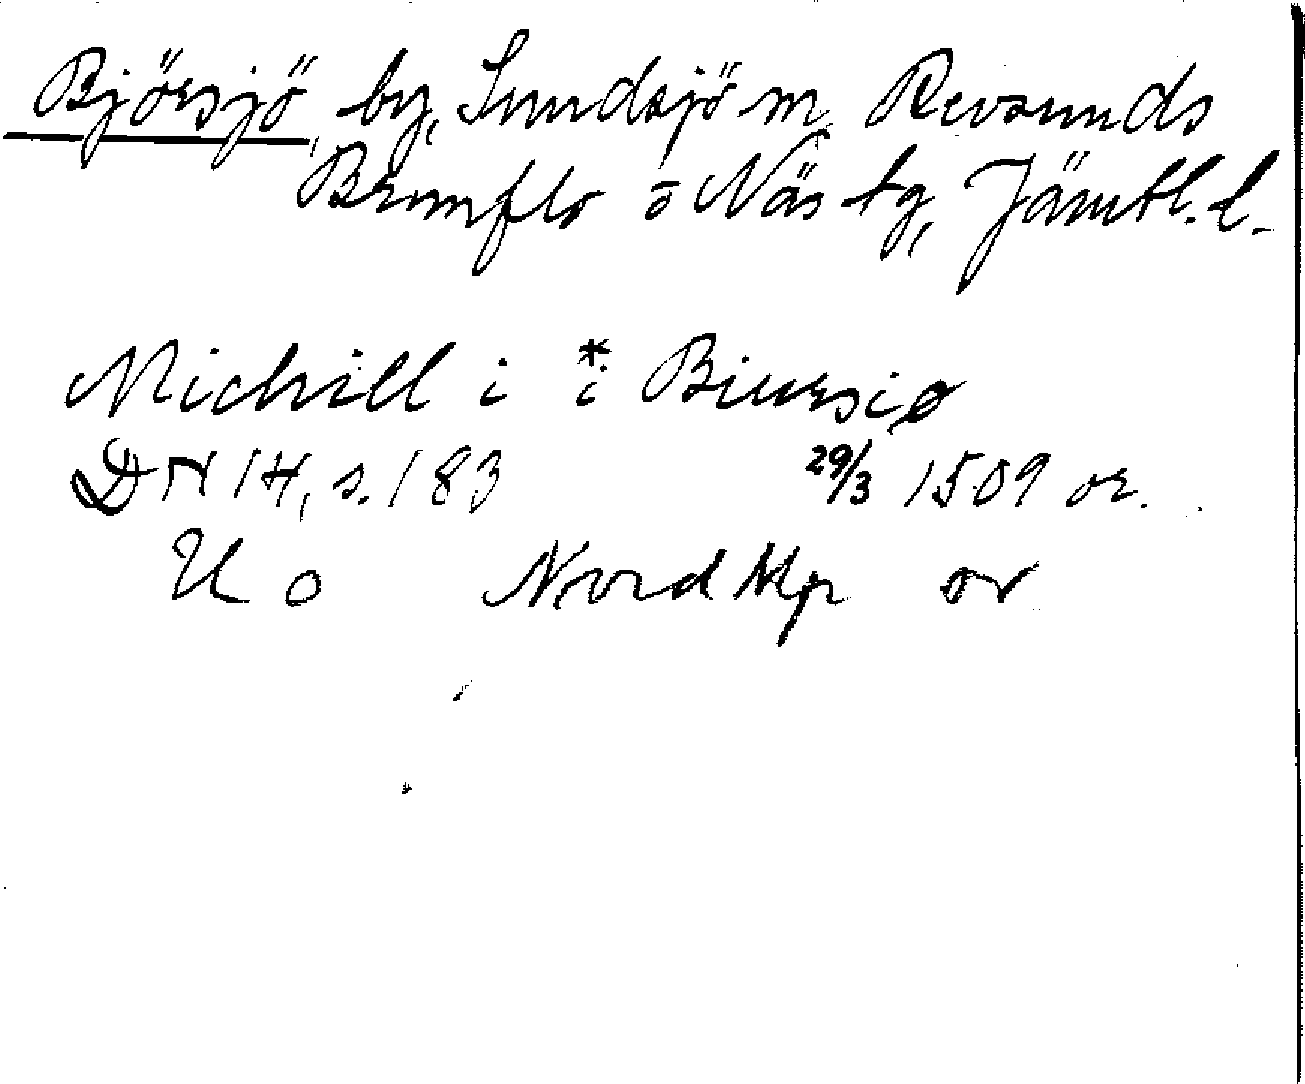 Björsjö, by, Sundsjö sn, Revsunds
Brunflo o Näs tg, Jämtl. l.
Michill i *i Biuersiø
DN 14, s. 183 29/3 1509 or.
U o Nord Kpr or